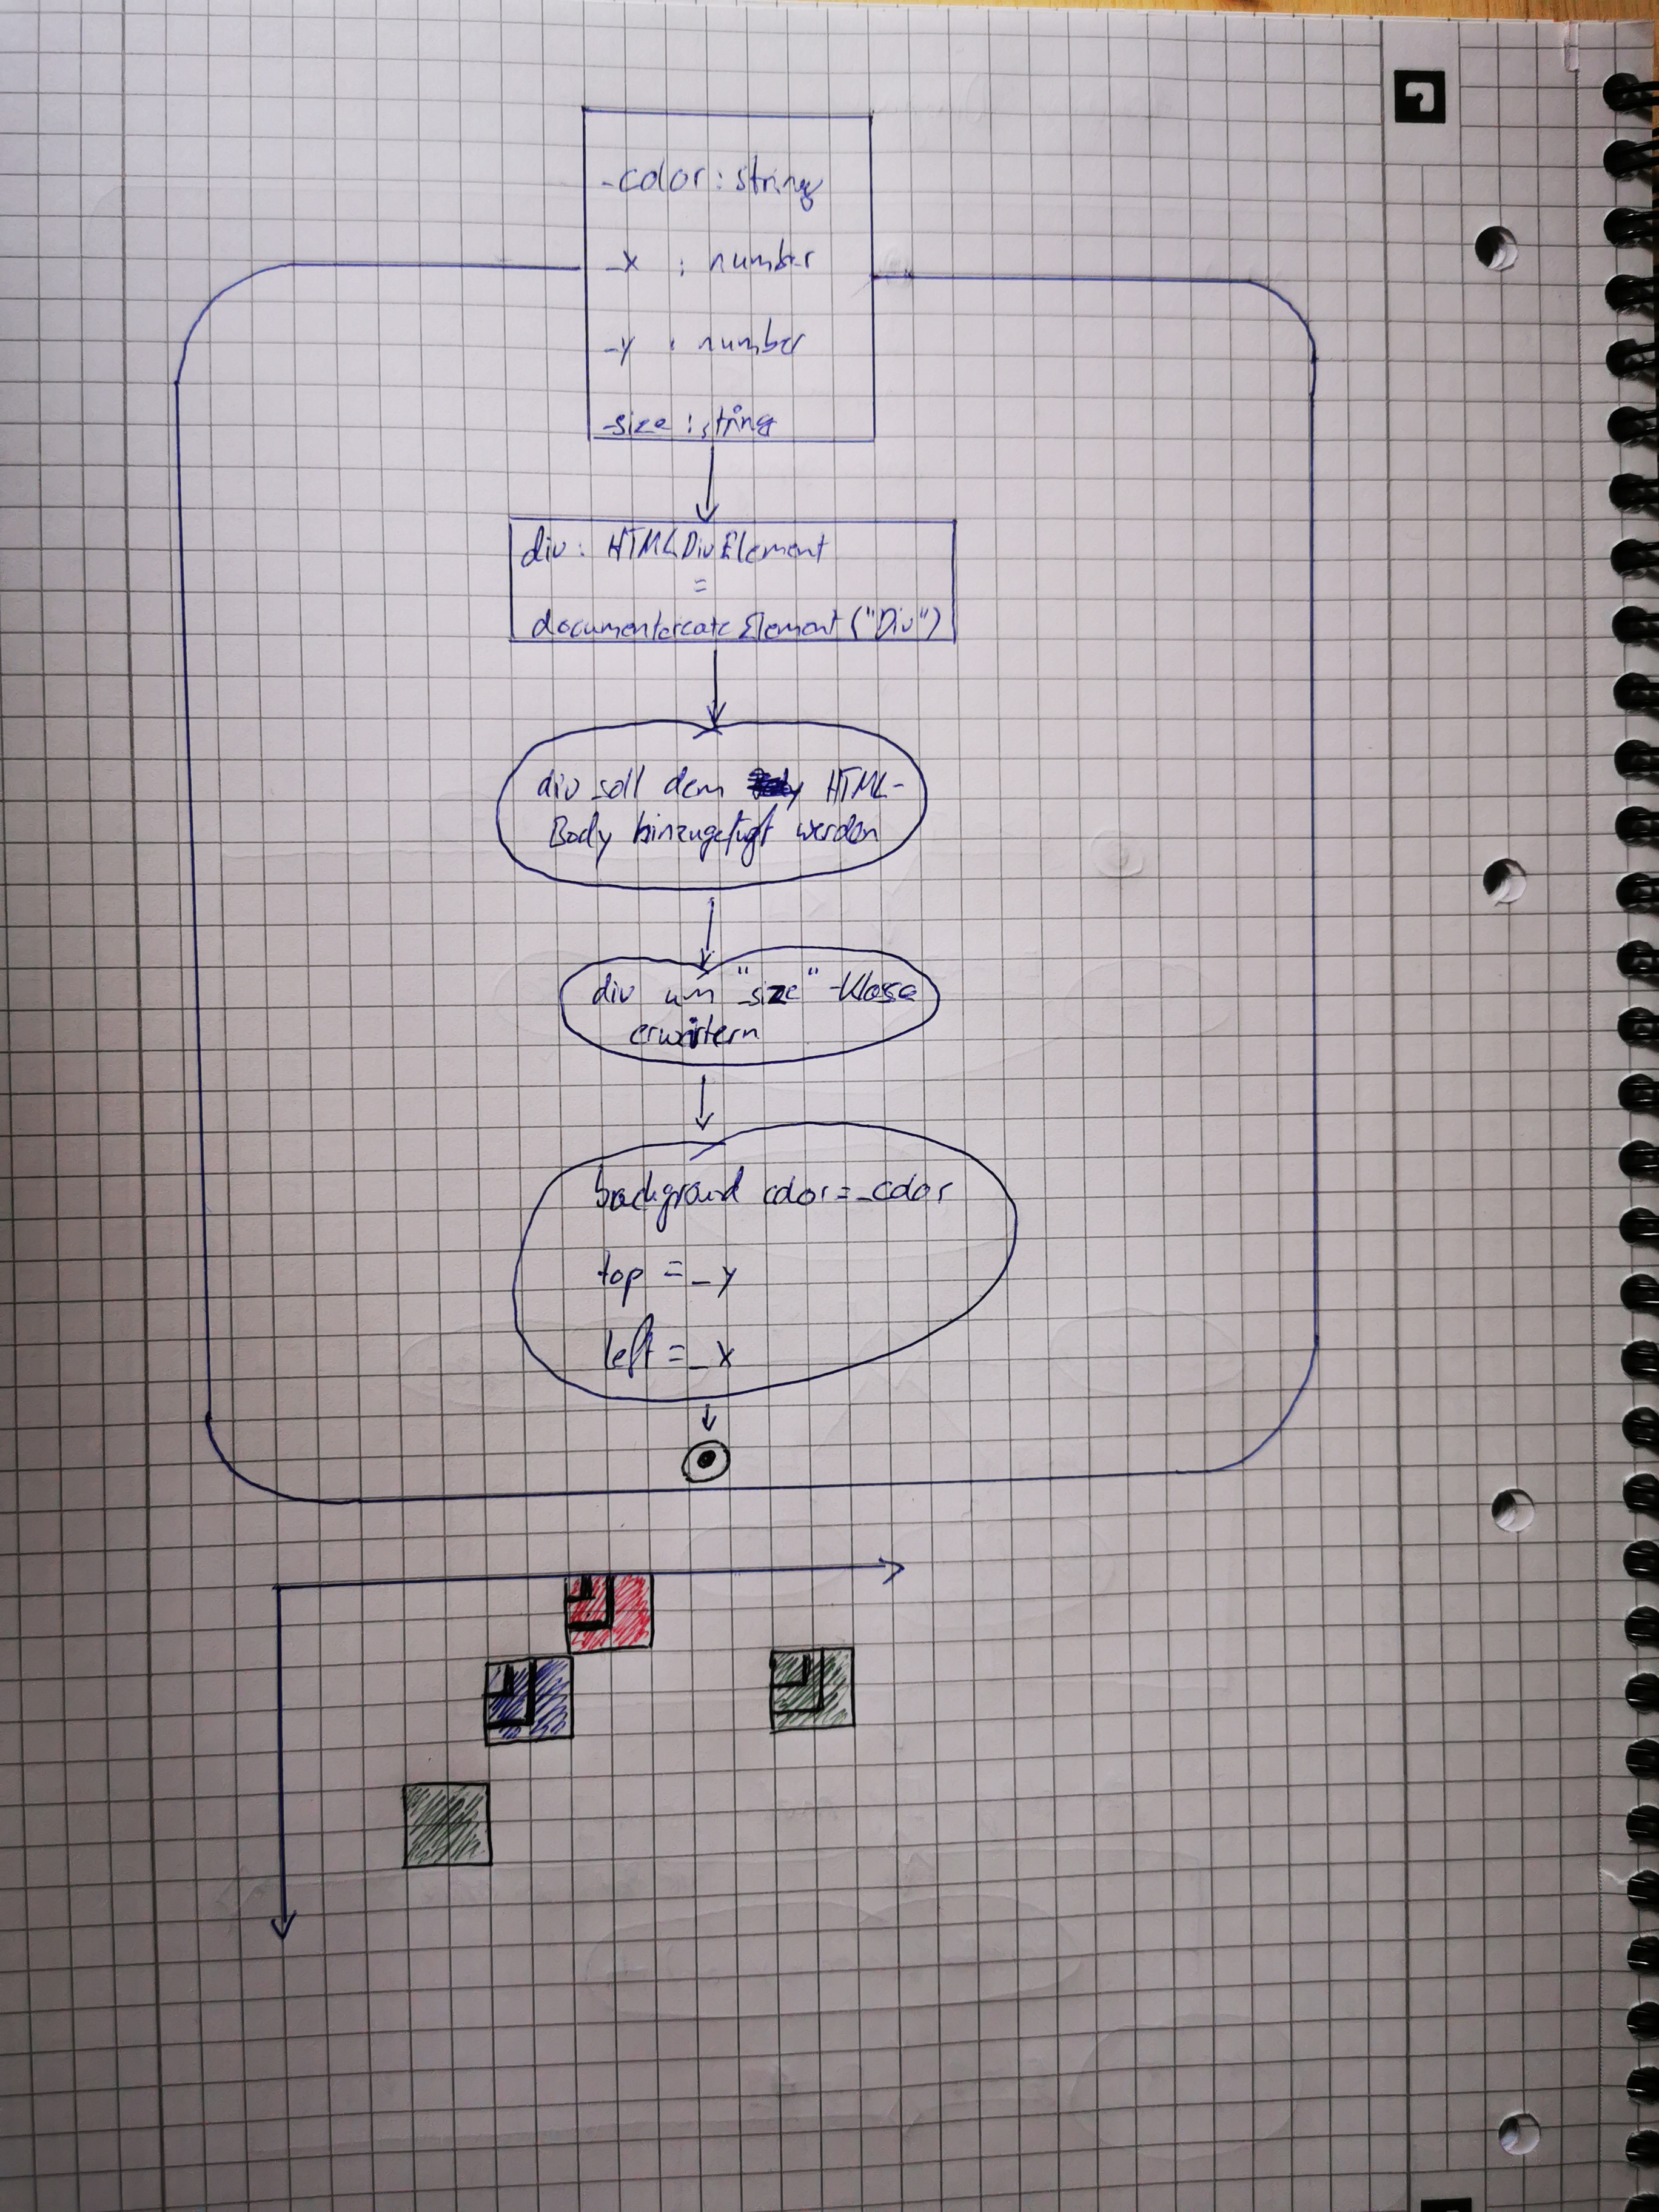 _color : string
_x : number
_y : number
_size : string
div : HTMLDivElement
=
document.createElement("Div")
div soll dem HTML-
Body hinzugefügt werden
div um "_size"-Klasse
erweitern
background color = _color
top = _y
left = _x